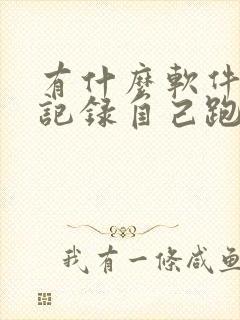 有什麼軟件
記錄自己跑
我有一條咸魚